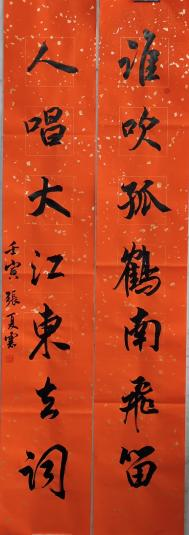 谁吹孤鶴南飛笛
人唱大江東去詞
壬寅張夏雲